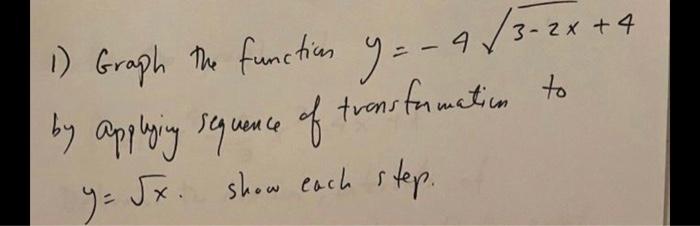 1) Graph the function y = - 4 √3-2x + 4
by applying sequence of transformation to
y = √x . show each step.